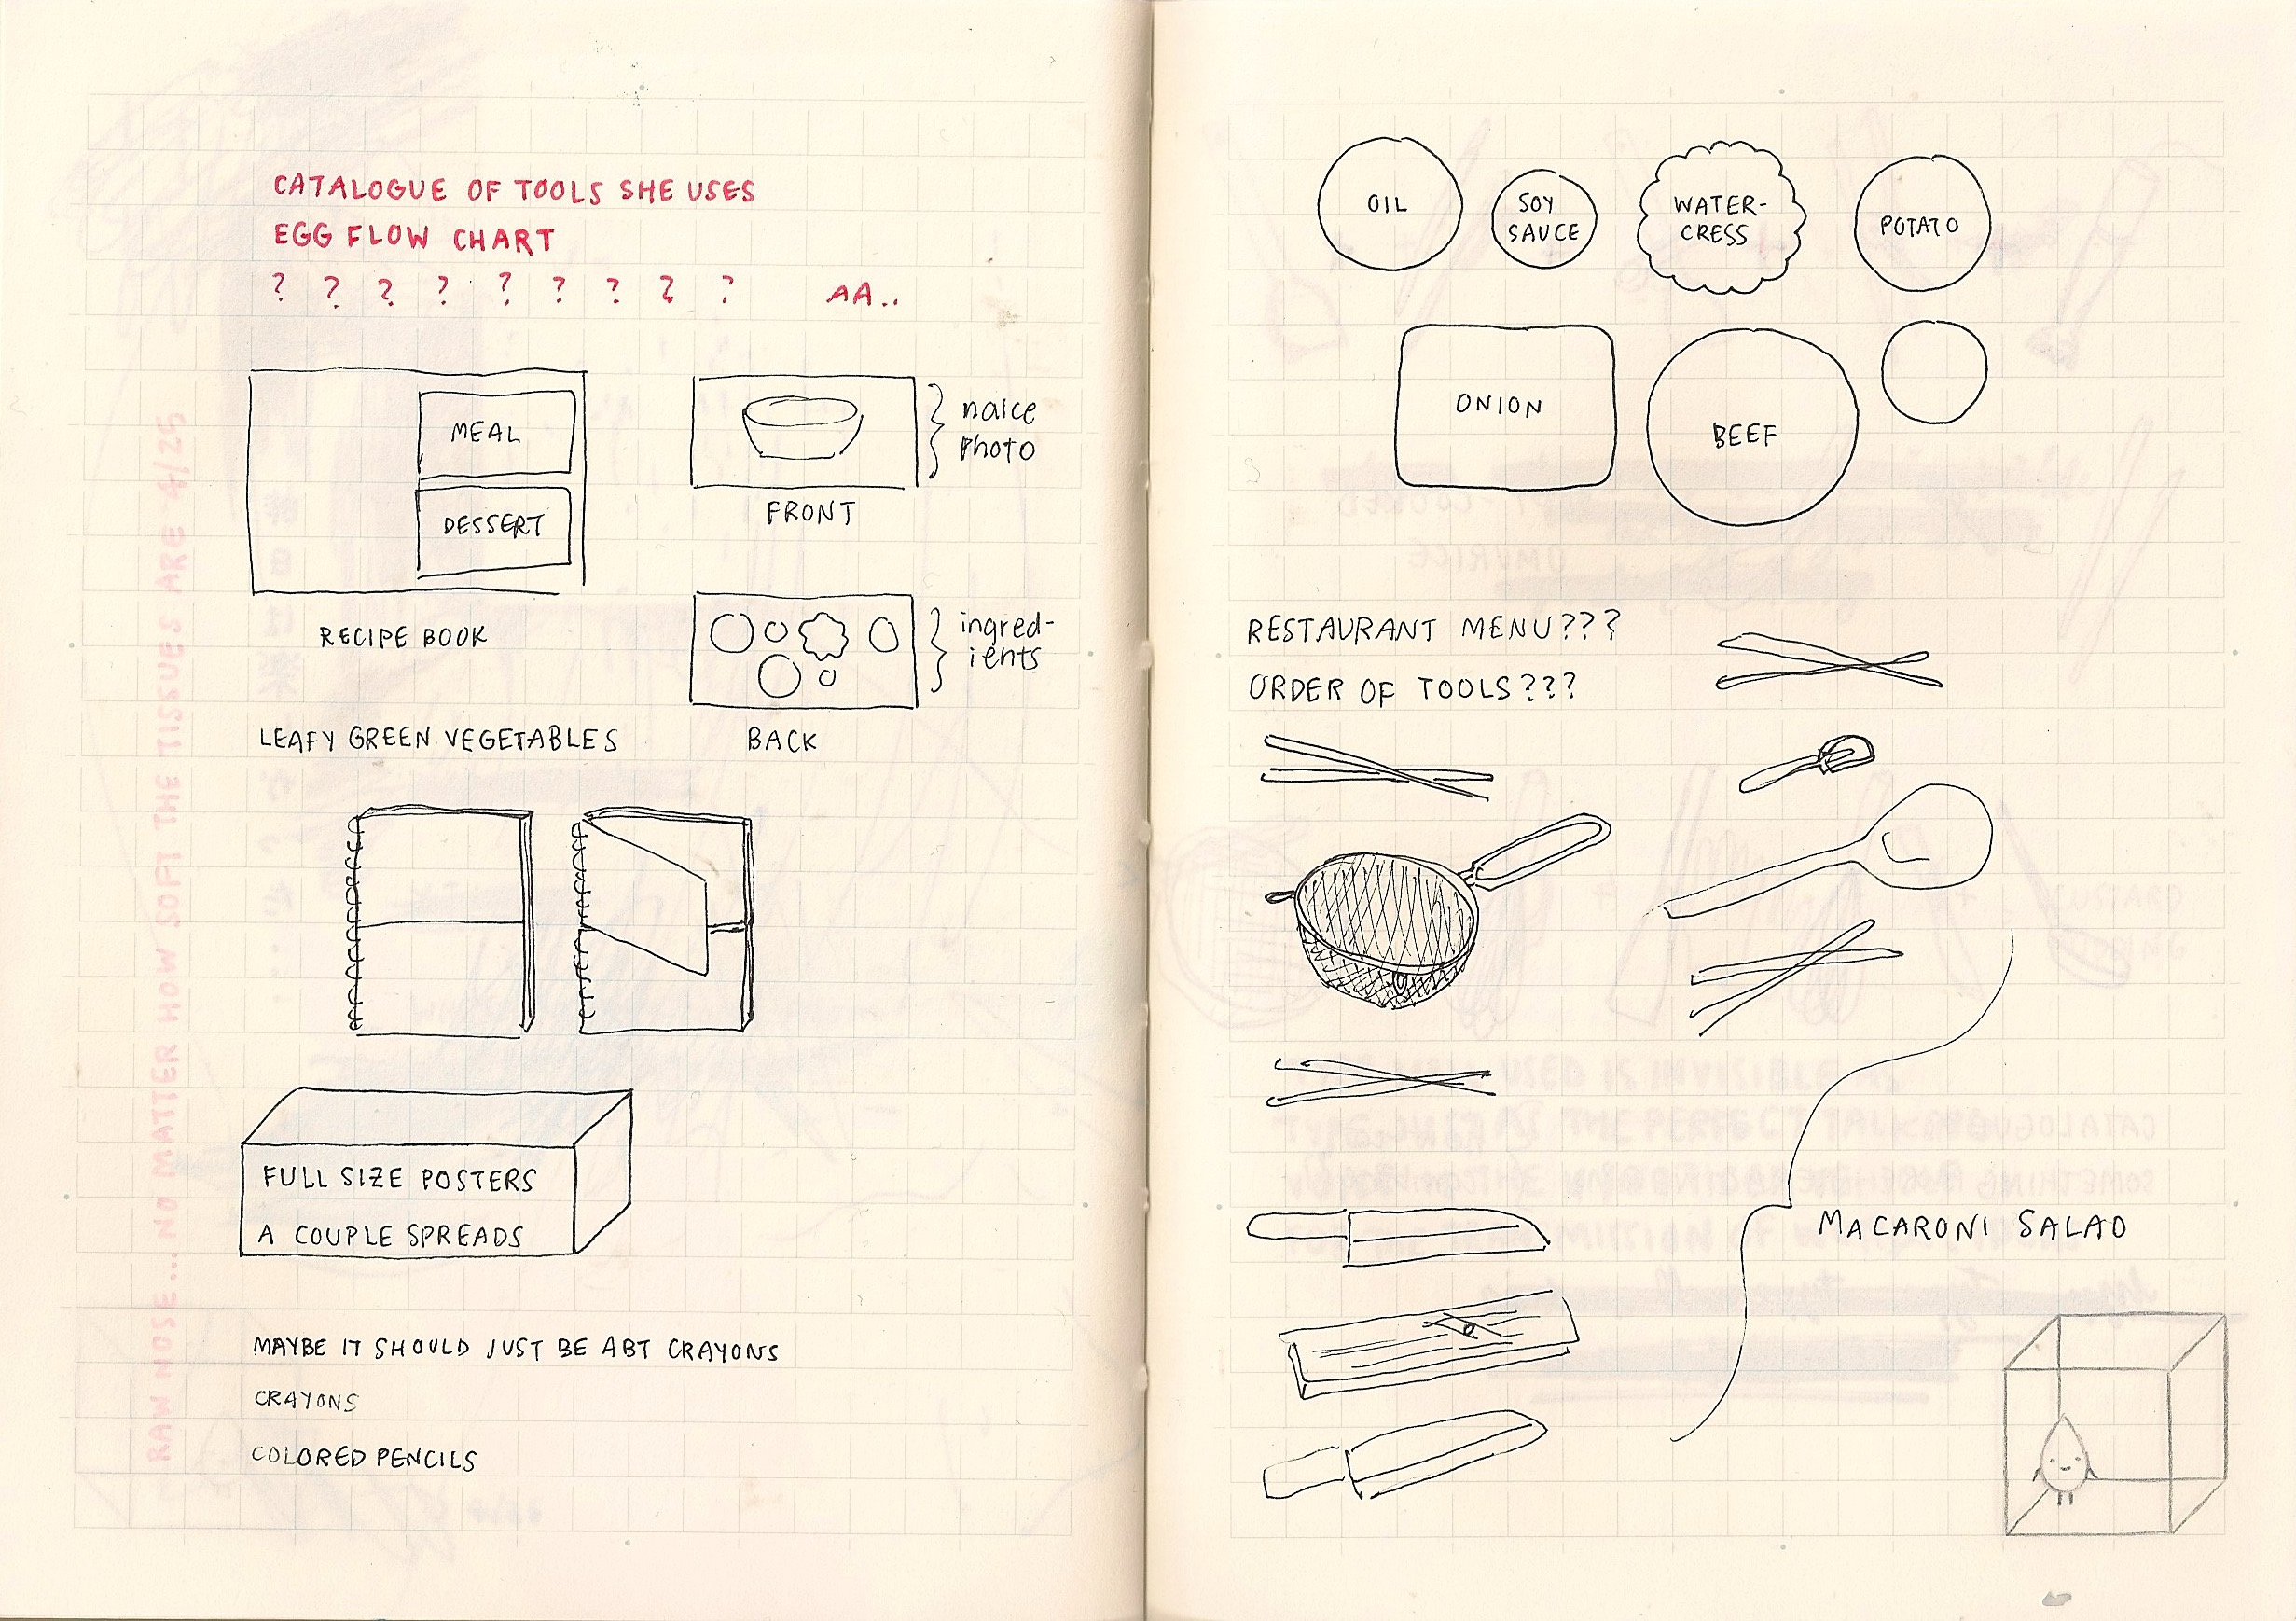 CATALOGUE OF TOOLS SHE USES
EGG FLOW CHART
? ? ? ? ? ? ? ? ? AA..
MEAL
DESSERT
RECIPE BOOK
naice
photo
FRONT
ingred-
ients
BACK
LEAFY GREEN VEGETABLES
FULL SIZE POSTERS
A COUPLE SPREADS
MAYBE IT SHOULD JUST BE ABT CRAYONS
CRAYONS
COLORED PENCILS
RAW NOSE... NO MATTER HOW SOFT THE TISSUES ARE 4/25
OIL
SOY
SAUCE
WATER-
CRESS
POTATO
ONION
BEEF
RESTAURANT MENU???
ORDER OF TOOLS???
MACARONI SALAD